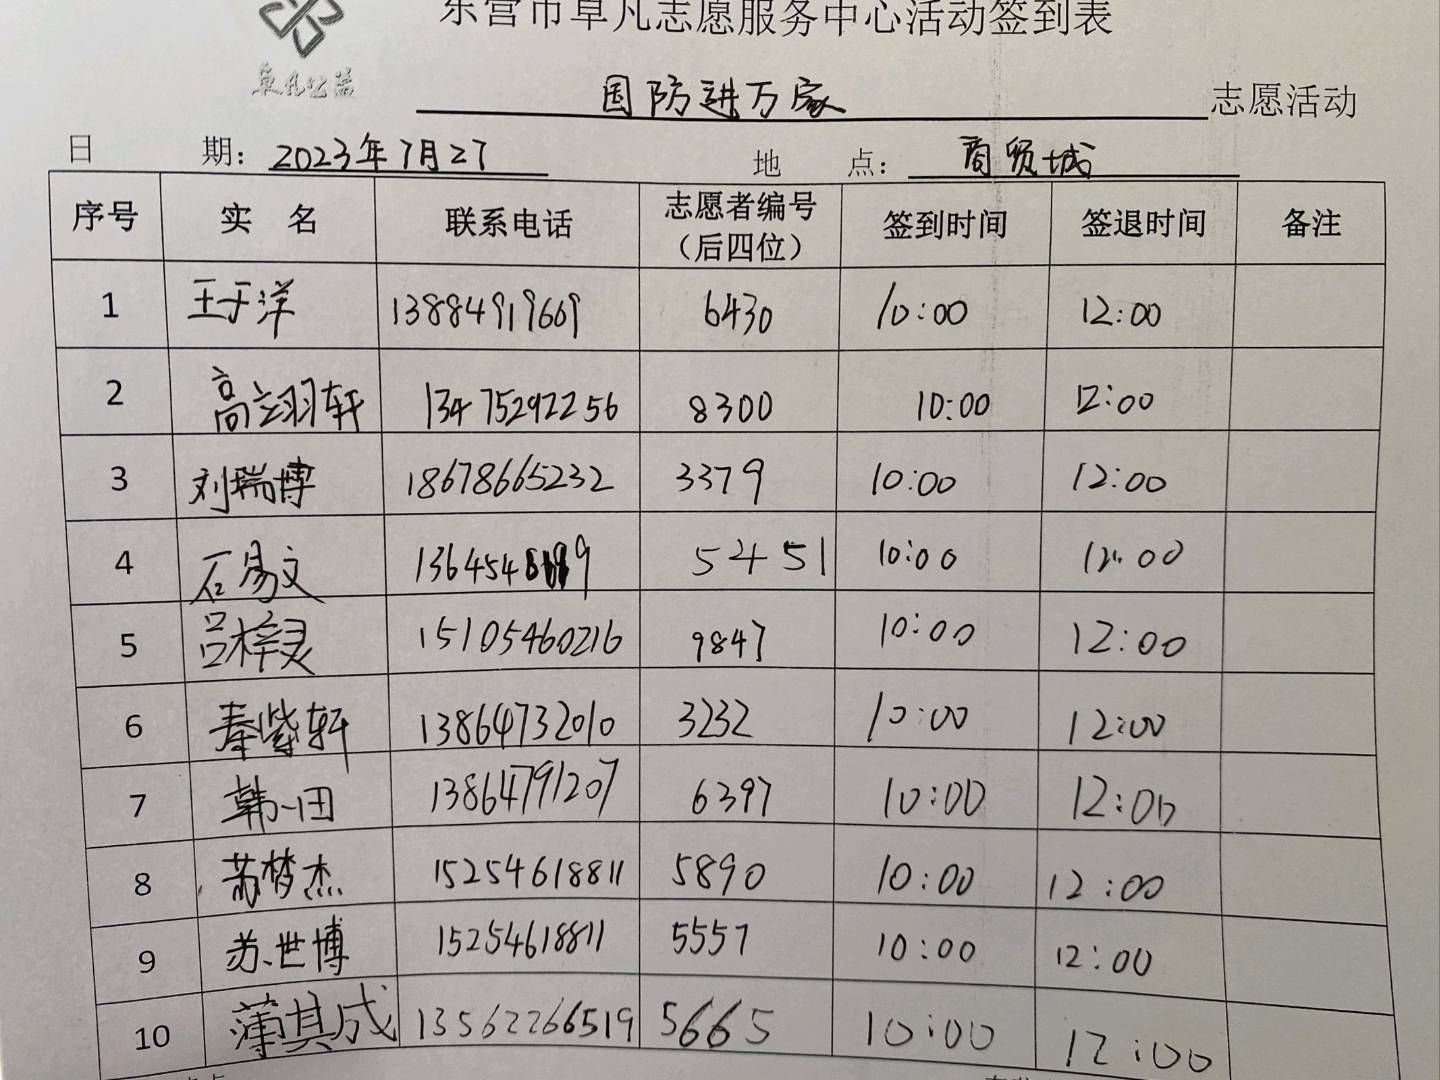 东营市卓凡志愿服务中心活动签到表
卓凡公益
国防进万家 志愿活动
日 期：2023年7月27 地 点：商贸城
序号 实 名 联系电话 志愿者编号（后四位） 签到时间 签退时间 备注
1 王于洋 13884919669 6430 10:00 12:00
2 高立翔轩 13475292256 8300 10:00 12:00
3 刘瑞博 18678665232 3379 10:00 12:00
4 石易文 5451 10:00 12:00
5 吕梓灵 15105460216 9847 10:00 12:00
6 秦紫轩 13864732010 3232 10:00 12:00
7 韩一田 13864791207 6397 10:00 12:00
8 苏梦杰 15254618811 5890 10:00 12:00
9 苏世博 15254618811 5557 10:00 12:00
10 薄其成 13562266519 5665 10:00 12:00